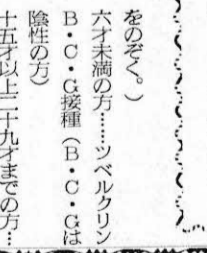 をのぞく。)
六才未満の方……ツベルクリン
B・C・G接種(B・C・Gは
陰性の方)
十五才以上二十九才までの方…